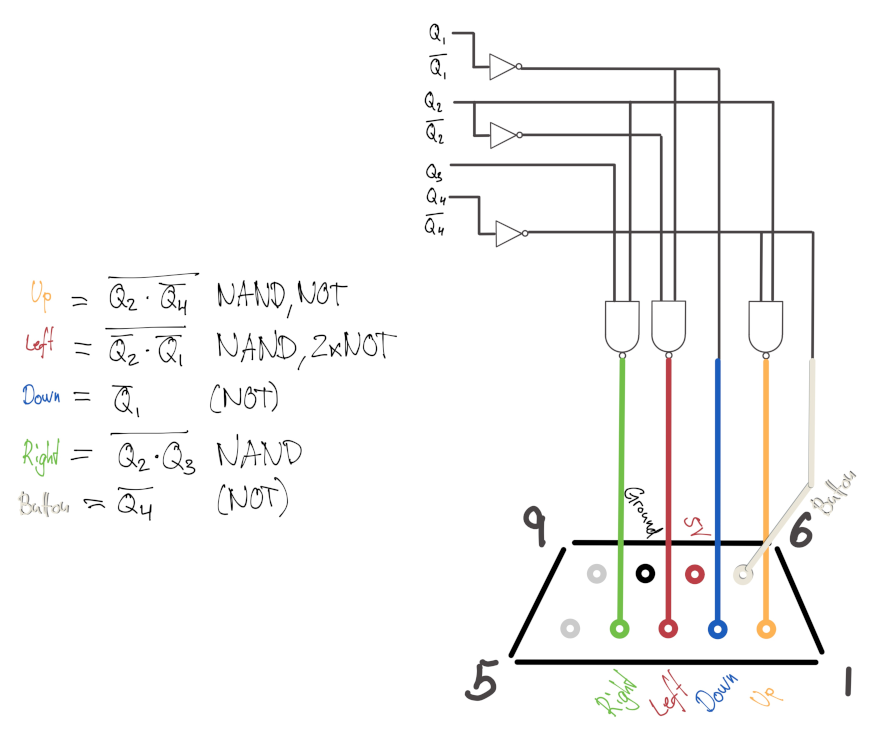 Q₁
Q̅₁
Q₂
Q̅₂
Q₃
Q₄
Q̅₄
Up = \overline{Q₂ · \overline{Q₄}} NAND, NOT
Left = \overline{\overline{Q₂} · \overline{Q₁}} NAND, 2xNOT
Down = \overline{Q}₁ (NOT)
Right = \overline{Q₂ · Q₃} NAND
Button = \overline{Q₄} (NOT)
Ground
5V
Button
9
6
5
1
Right
Left
Down
Up